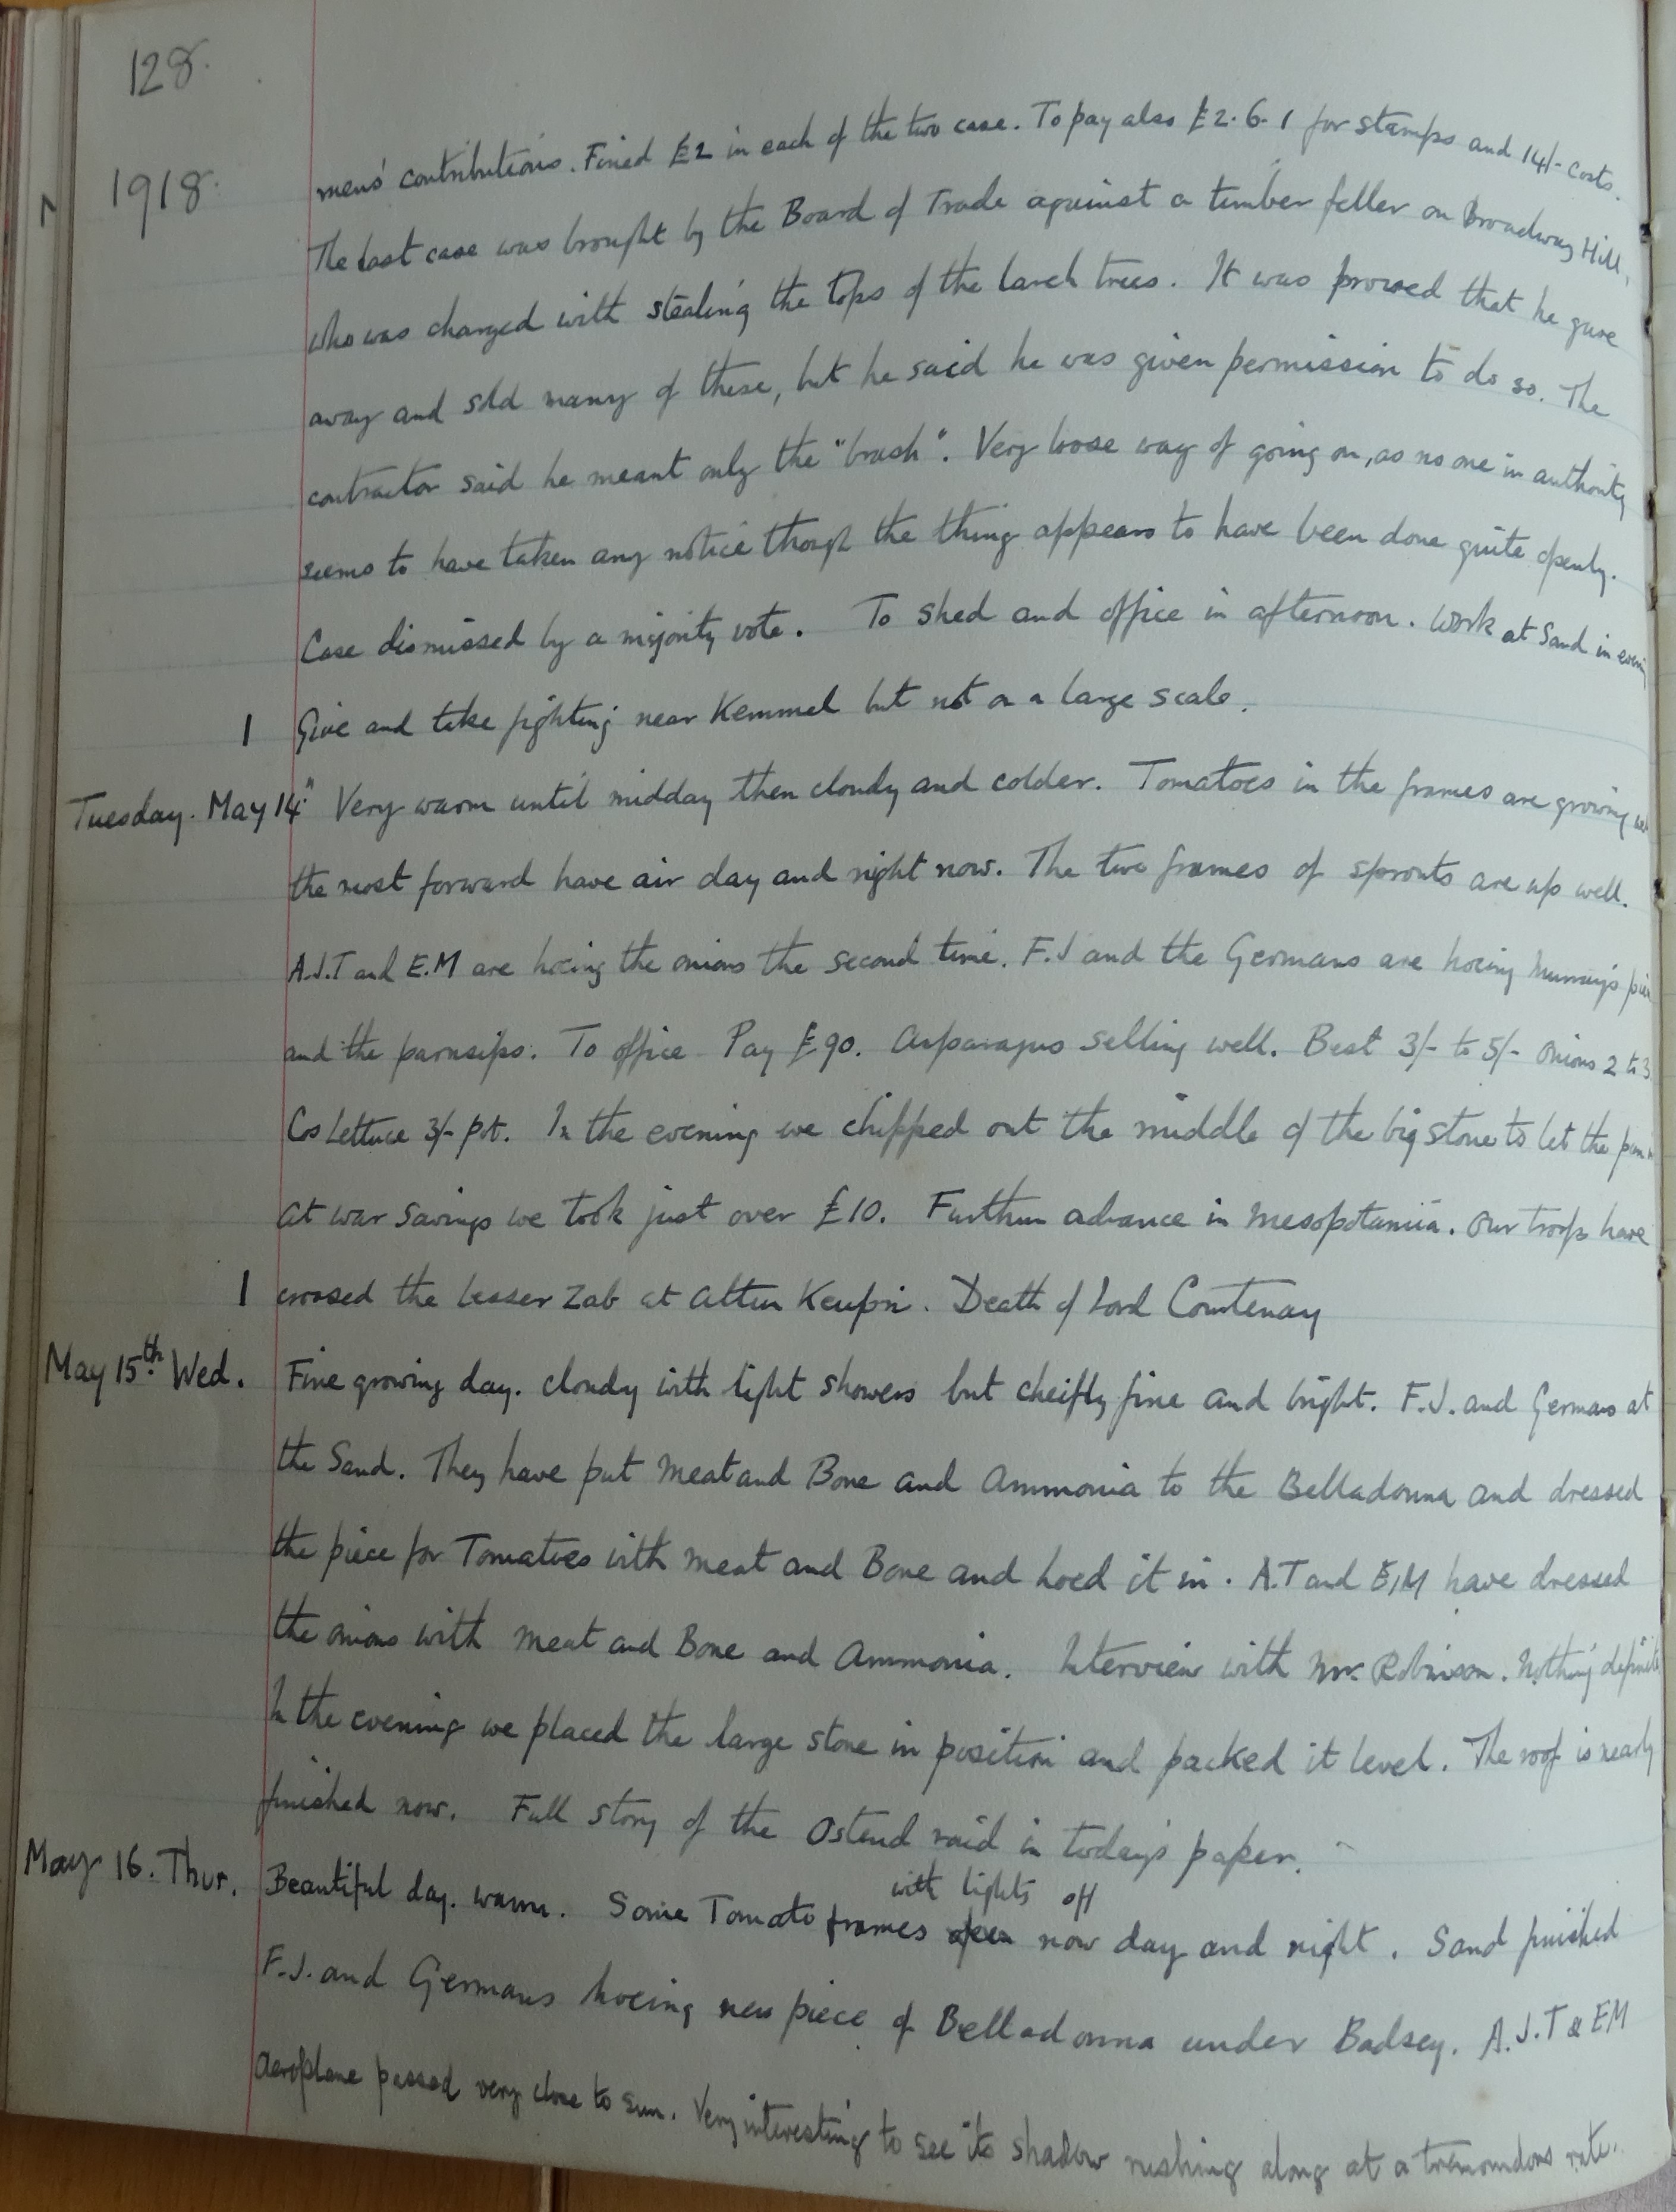 128.
1918.
mens' contributions. Fined £2 in each of the two case. To pay also £2. 6. 1 for stamps and 14/- costs.
The last case was brought by the Board of Trade against a timber feller on Broadway Hill,
who was charged with stealing the tops of the larch trees. It was proved that he gave
away and sold many of these, but he said he was given permission to do so. The
contractor said he meant only the "brash". Very loose way of going on, as no one in authority
seems to have taken any notice though the thing appears to have been done quite openly.
Case dismissed by a majority vote. To shed and office in afternoon. Work at Sand in
1 Give and take fighting near Kemmel but not on a large scale.
Tuesday. May 14" Very warm until midday then cloudy and colder. Tomatoes in the frames are growing
the most forward have air day and night now. The two frames of sprouts are up well.
A.J.T and E.M are hoeing the onions the second time. F.J and the Germans are hoeing
and the parsnips. To office Pay £90. Asparagus selling well. Best 3/- to 5/- Onions 2 to 3
Cos Lettuce 3/- pot. In the evening we chipped out the middle of the big stone to let the
At war savings we took just over £10. Further advance in Mesopotamia. Our troops have
1 crossed the Lesser Zab at Altun Keupri. Death of Lord Courtenay
May 15th Wed. Fine growing day. Cloudy with light showers but cheifly fine and bright. F.J. and Germans at
the Sand. They have put Meat and Bone and Ammonia to the Belladonna and dressed
the piece for Tomatoes with meat and Bone and hoed it in. A.T and E.M have dressed
the onions with meat and Bone and Ammonia. Interview with Mr. Robinson. Nothing definite
In the evening we placed the large stone in position and packed it level. The roof is nearly
finished now. Full story of the Ostend raid in today's paper.
with lights off
May 16. Thur. Beautiful day. warm. Some Tomato frames open now day and night. Sand finished
F.J. and Germans hoeing new piece of Belladonna under Badsey. A.J.T & EM
Aeroplane passed very close to sun. Very interesting to see its shadow rushing along at a tremendous rate.